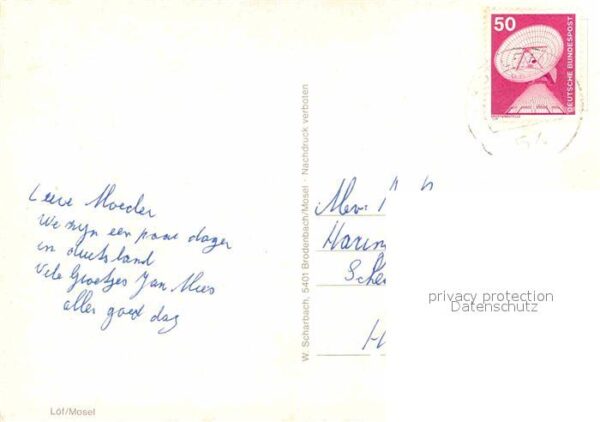 50
DEUTSCHE BUNDESPOST
Lieve Moeder
We zijn een paar dagen
in duitsland
Vele Groetjes Jan Mies
alles goed dag
W. Scharbach, 5401 Brodenbach/Mosel · Nachdruck verboten
Mevr
Haring
Sche
H
privacy protection
Datenschutz
Löf/Mosel